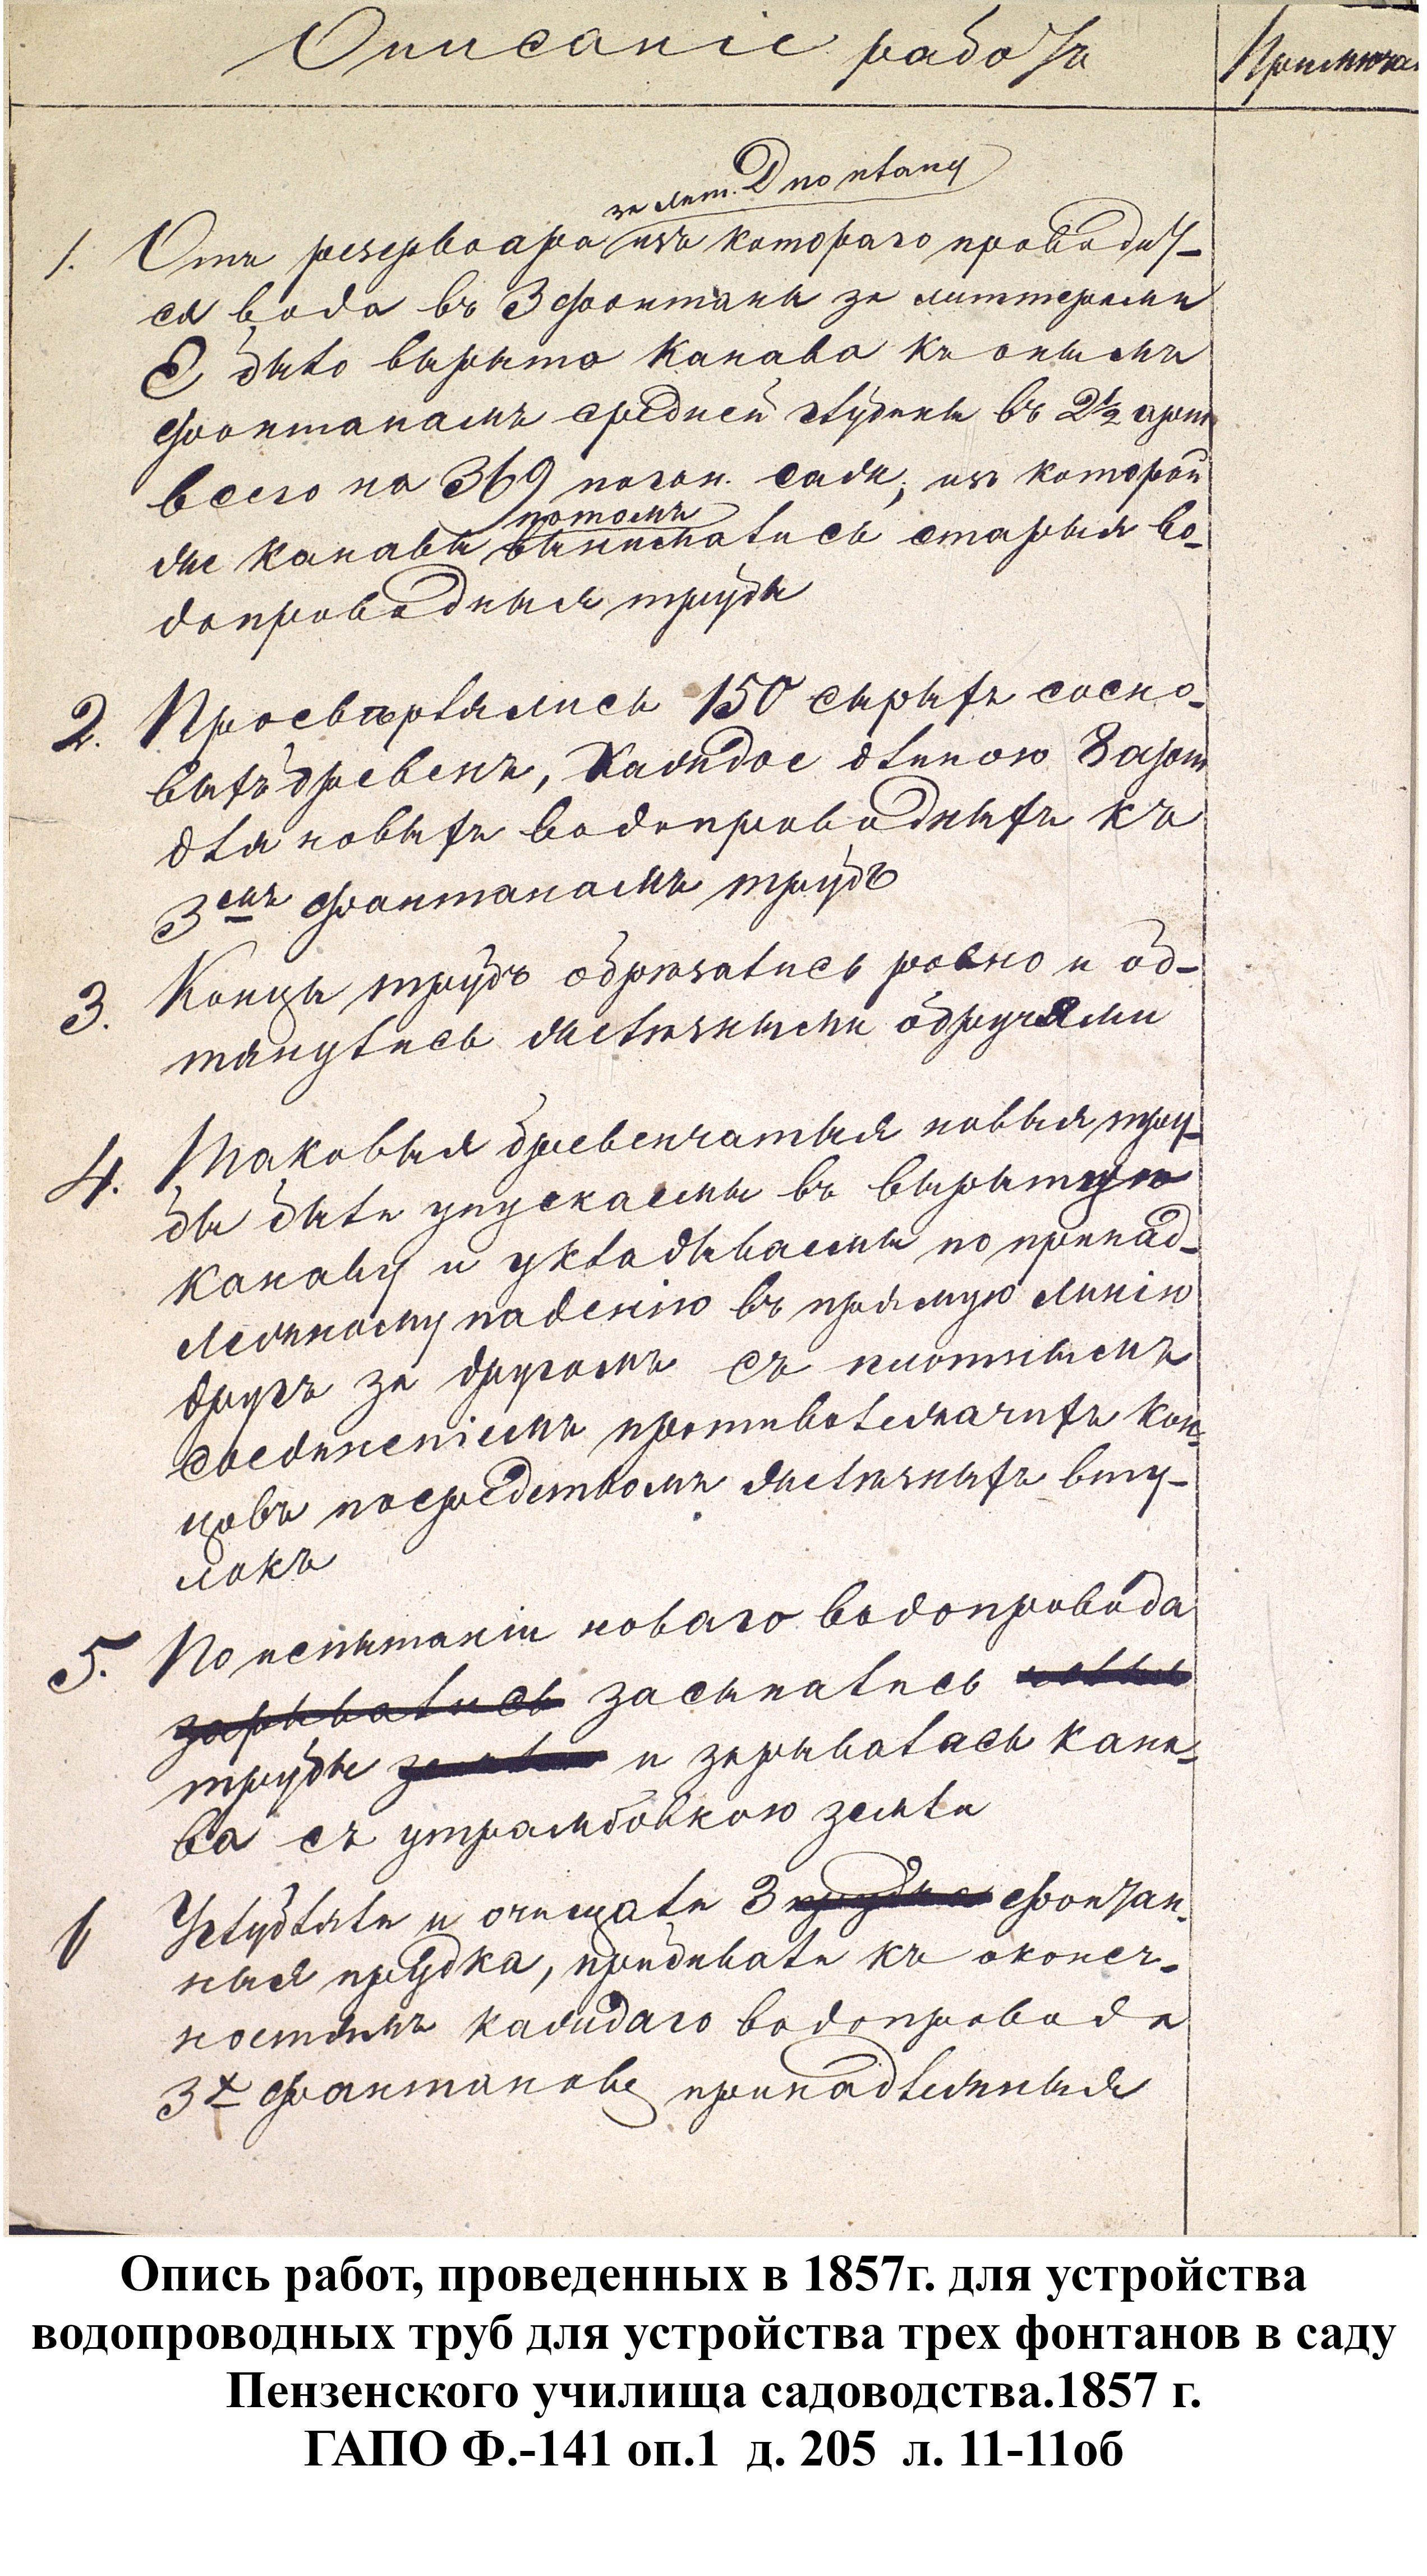 Описаніе работъ
Примѣча
за лит. D по плану
1. Отъ резервоара изъ котораго проводит-
ся вода въ 3 фонтаны за литтерами
Е было вырыто канава къ онымъ
фонтанамъ средней глубины въ 2½ арш
всего на 369 погон. саж, изъ которой
потомъ
же канавы вынимались старыя во-
допроводныя трубы
2. Просверлялись 150 сырыхъ сосно-
выхъ бревенъ, каждое длиною 8 арш
для новыхъ водопроводныхъ къ
3емъ фонтанамъ трубъ
3. Концы трубъ обрѣзались ровно и об-
тянулись желѣзными обручами
4. Таковыя бревенчатыя новыя тру-
бы были упускаемы въ вырытую
канаву и укладываемы по принад-
лежному паденію въ прямую линію
другъ за другомъ съ плотнымъ
соединеніемъ противолежачихъ кон-
цовъ посредствомъ желѣзныхъ вту-
локъ
5. По испытаніи новаго водопровода
зарывались засыпались
трубы землею и зарывалась кана-
ва съ утрамбовкою земли
6 Углубляли и очищали 3 фонтан-
ныя прудка, придѣлали къ оконеч-
ностямъ каждаго водопровода
3х фонтановъ принадлежныя
Опись работ, проведенных в 1857г. для устройства
водопроводных труб для устройства трех фонтанов в саду
Пензенского училища садоводства.1857 г.
ГАПО Ф.-141 оп.1 д. 205 л. 11-11об